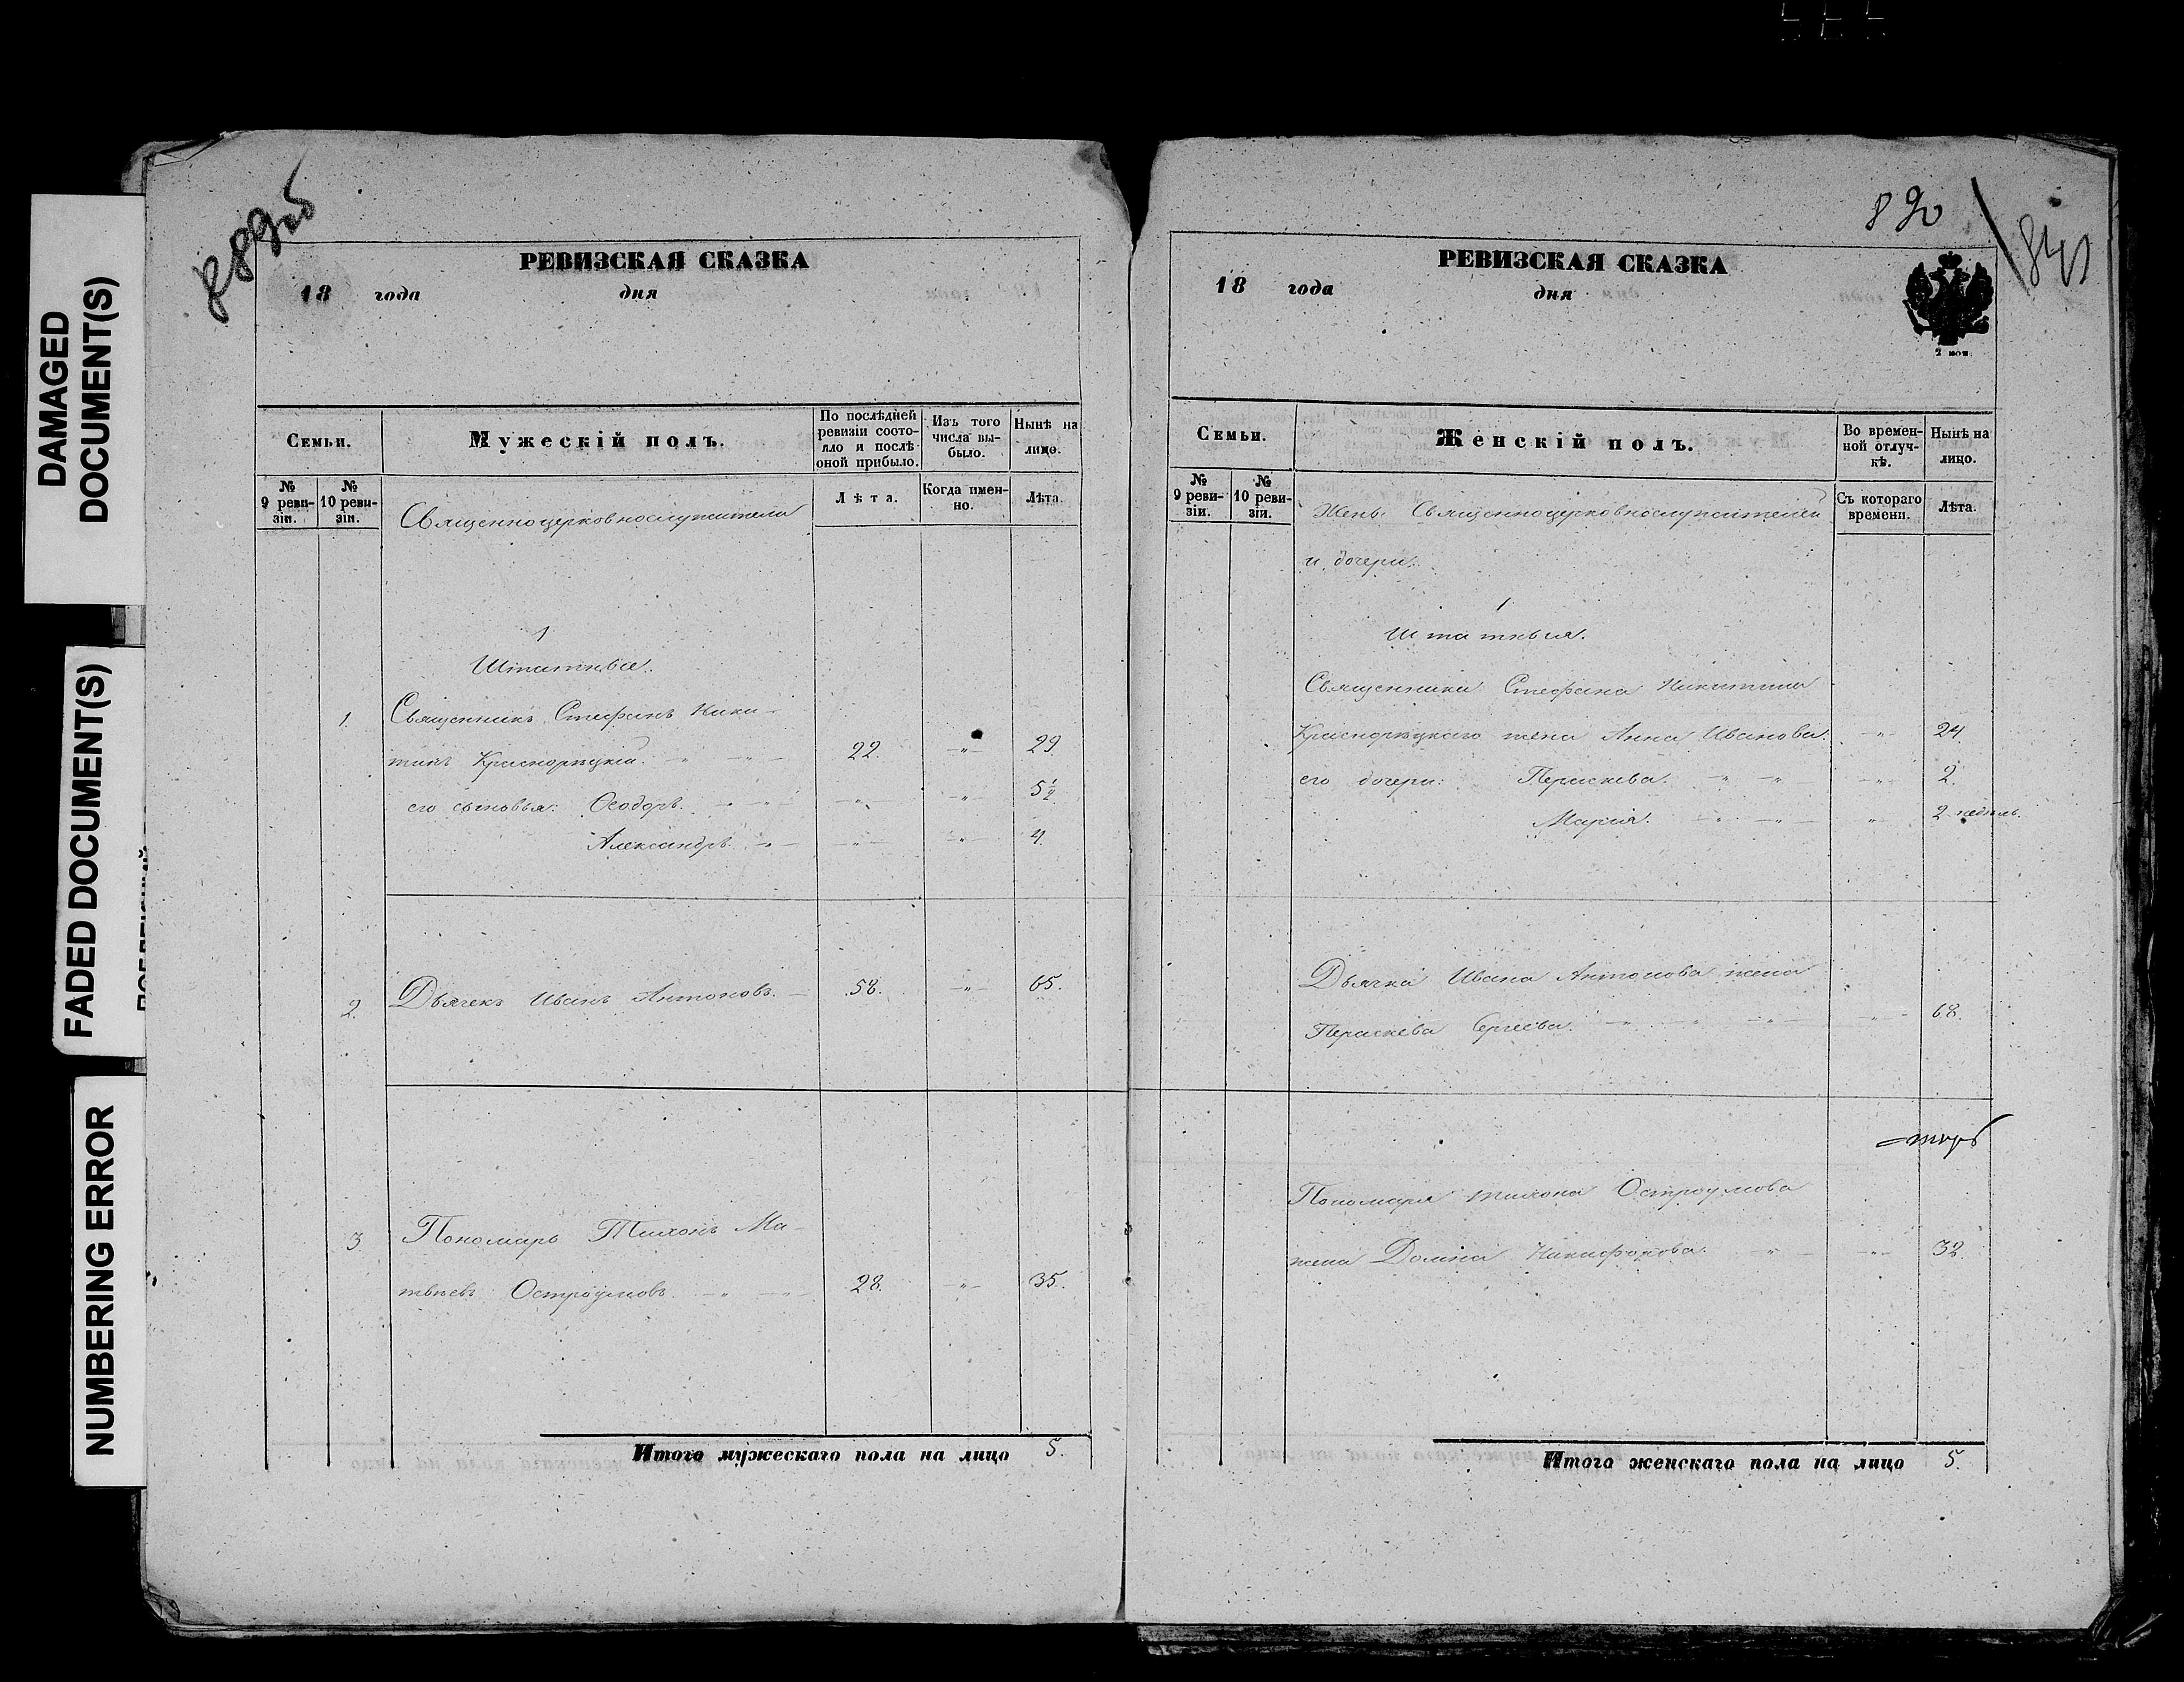 DAMAGED
DOCUMENT(S)
FADED DOCUMENT(S)
NUMBERING ERROR
РЕВИЗСКАЯ СКАЗКА
18 года дня
Семьи.
Мужескій полъ.
По послѣдней
ревизіи состо-
яло и послѣ
оной прибыло.
Изъ того
числа вы-
было.
Нынѣ на
лицо.
№
9 реви-
зіи.
№
10 реви-
зіи.
Лѣта.
Когда имен-
но.
Лѣта.
Священноцерковнослужители
1
Штатные.
1. Священникъ Стефанъ Ники-
тинъ Краснорѣцкій. 22. -"- 29
его сыновья: Ѳеодоръ. -"- -"- 5½
Александръ. -"- -"- 4.
2. Дьячекъ Иванъ Антоновъ. 58. -"- 65.
3 Пономарь Тихонъ Ма-
твѣевъ Остроумовъ. 28. -"- 35.
Итого мужескаго пола на лицо 5.
890
РЕВИЗСКАЯ СКАЗКА
18 года дня
2 коп.
Семьи.
Женскій полъ.
Во времен-
ной отлуч-
кѣ.
Нынѣ на
лицо.
№
9 реви-
зіи.
№
10 реви-
зіи.
Съ котораго
времени.
Лѣта.
Жены Священноцерковнослужителей
и дочери.
1
Штатныя.
Священника Стефана Никитина
Краснорѣцкаго жена Анна Иванова. -"- 24.
его дочери: Параскева. -"- 2.
Марія. -"- 2 недѣль.
Дьячка Ивана Антонова жена
Параскева Сергѣева. -"- 68.
Пономаря Тихона Остроумова
жена Домна Никифорова. -"- 32.
Итого женскаго пола на лицо 5.